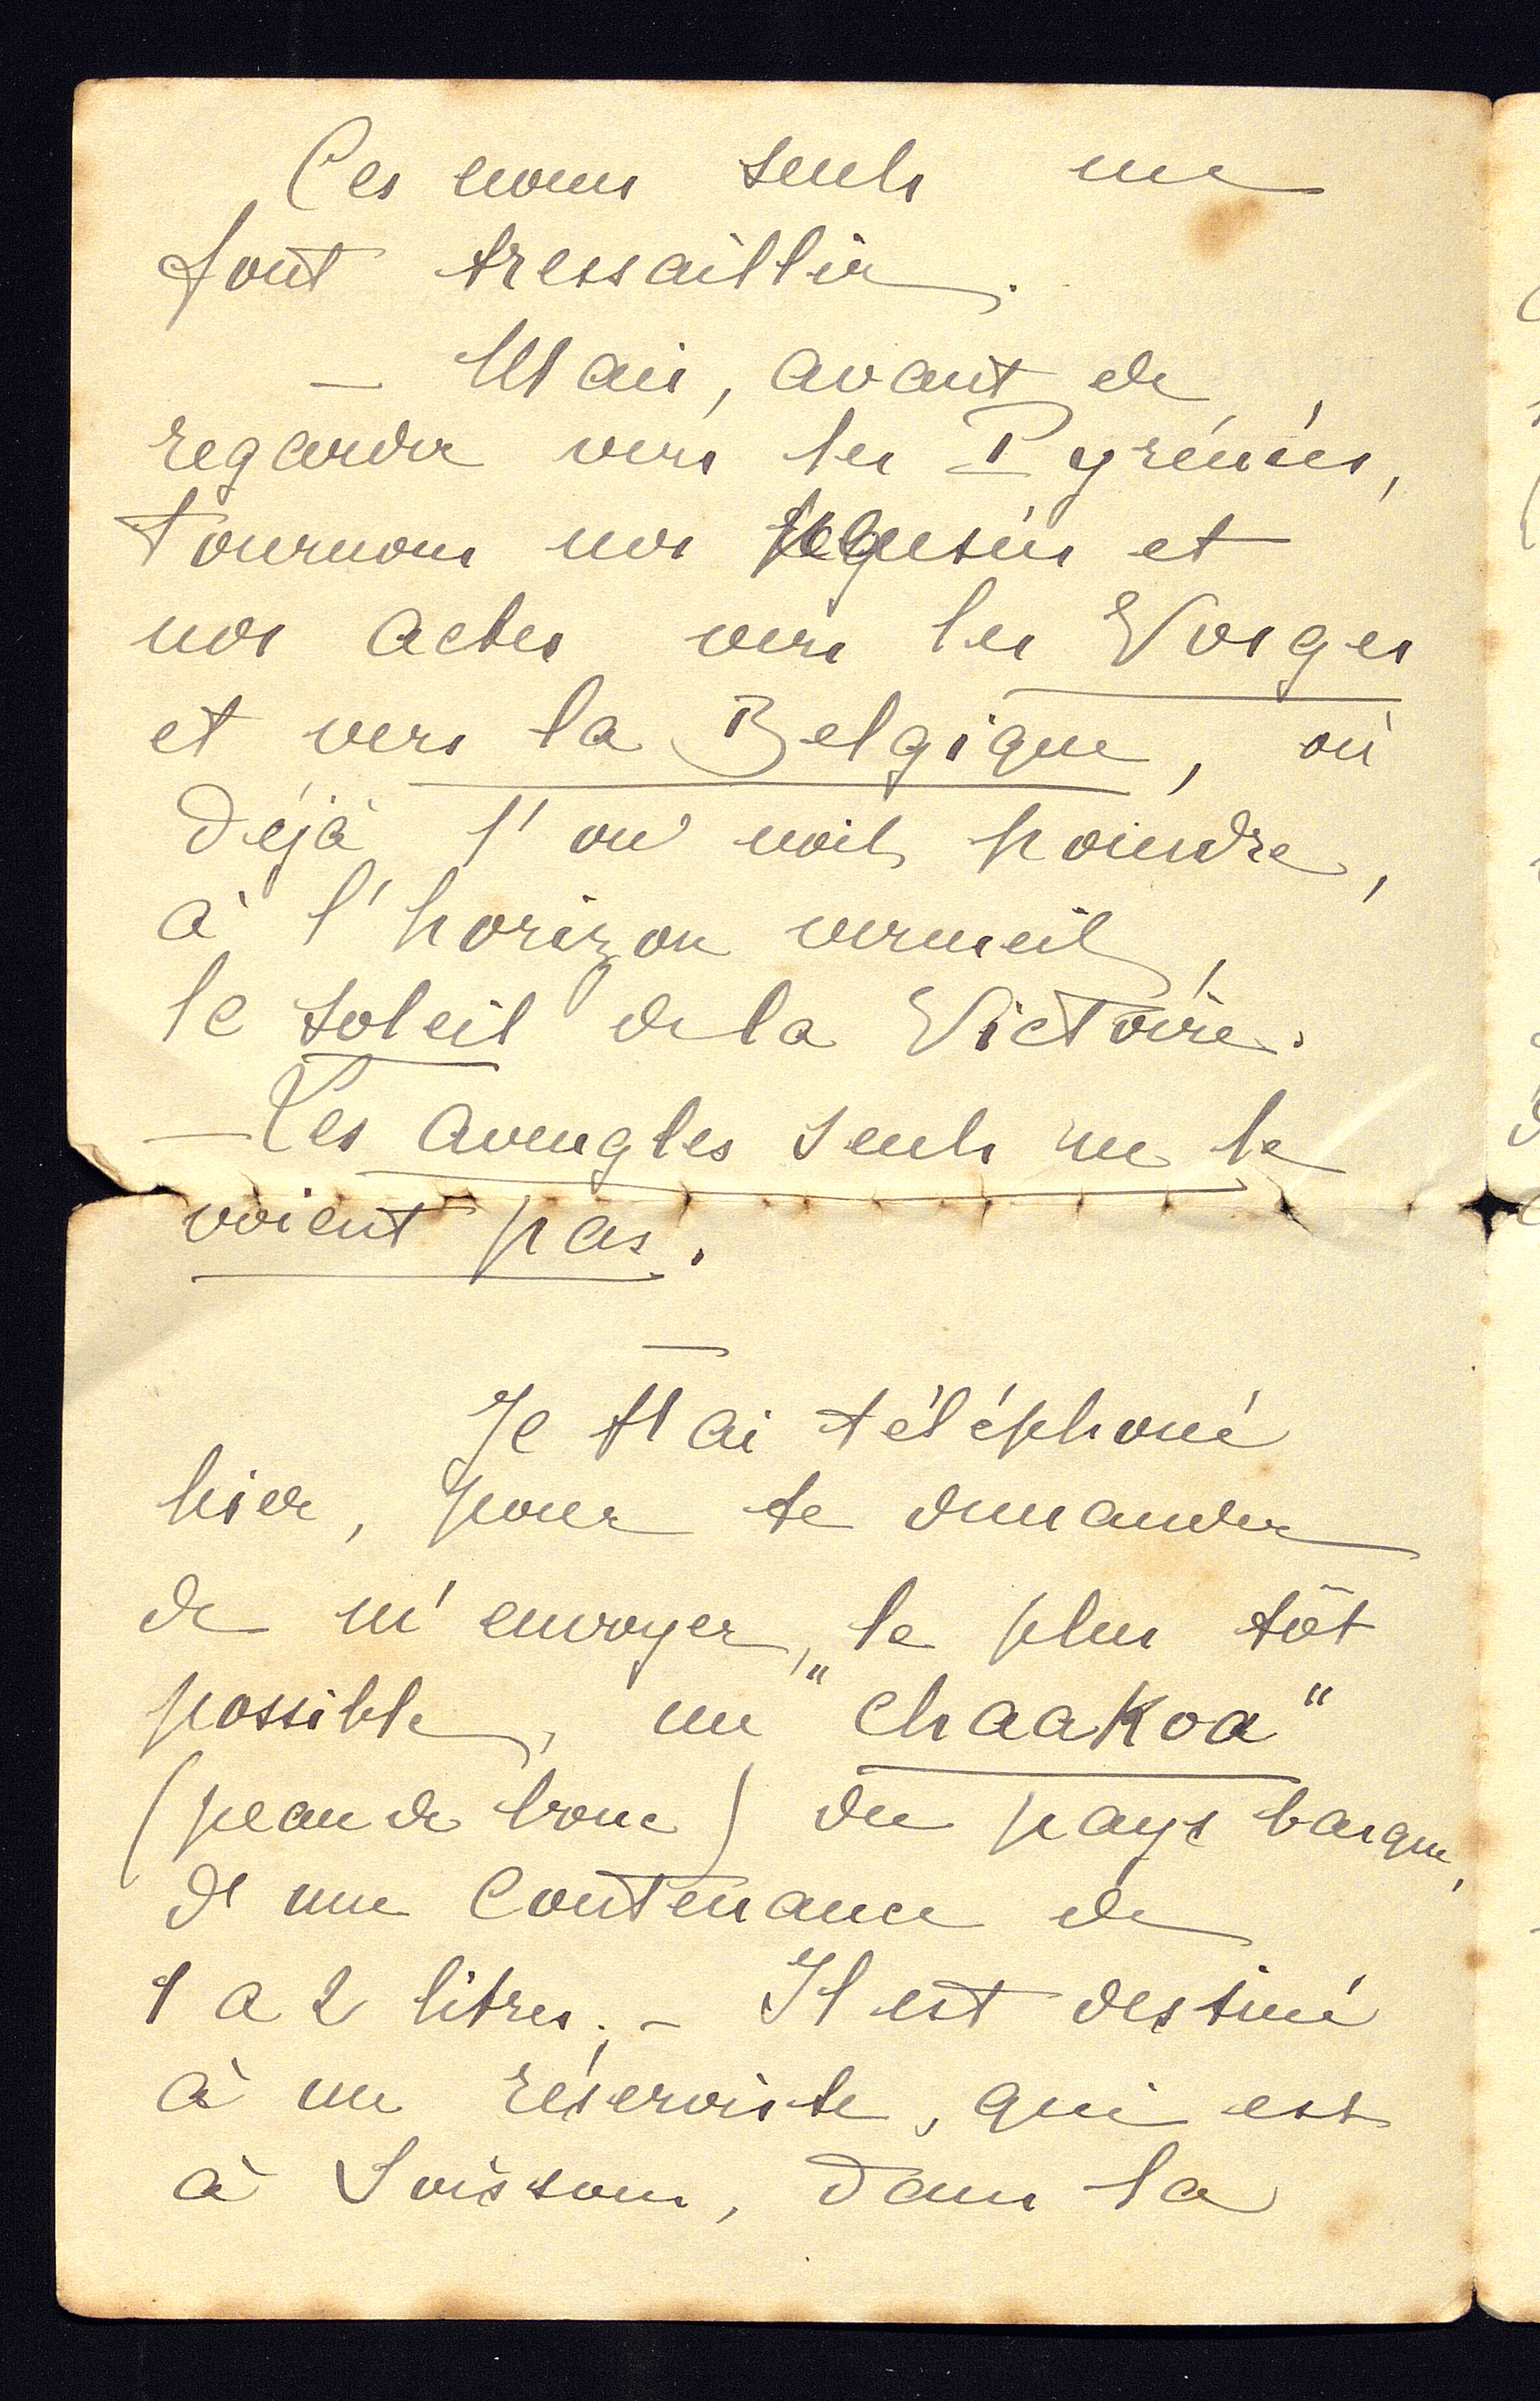 Ces noms seuls me
font tressaillir.
— Mais, avant de
regarder vers les Pyrénées,
tournons nos pensées et
nos actes vers les Vosges
et vers la Belgique, où
déjà l'on voit poindre,
à l'horizon vermeil,
le soleil de la Victoire.
— Les aveugles seuls ne le
voient pas.
—
Je t'ai téléphoné
hier, pour te demander
de m'envoyer, le plus tôt
possible, un "chaakoa"
(peau de bouc) du pays basque,
d'une contenance de
1 a 2 litres. - Il est destiné
à un réserviste, qui est
à Soissons, dans la